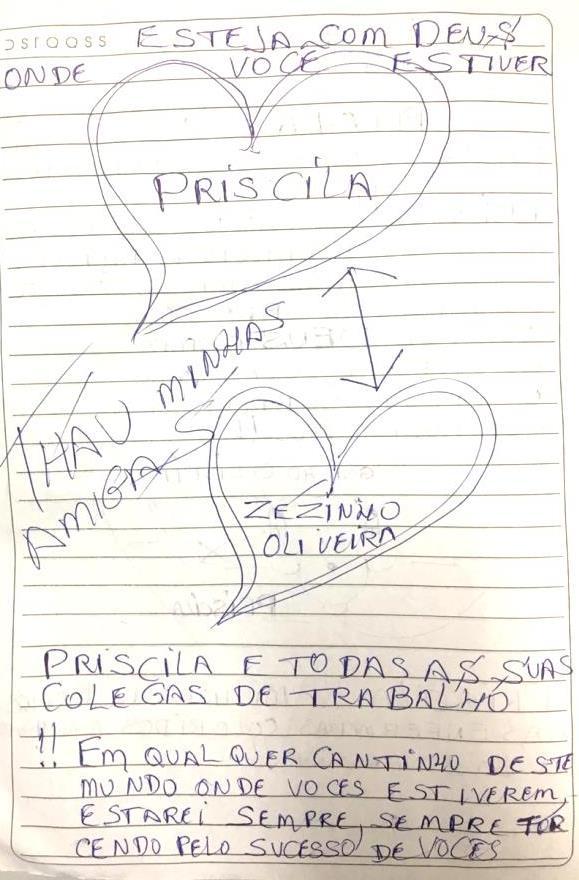 ESTEJA COM DEUS
ONDE VOCÊ ESTIVER
PRISCILA
THAU MINHAS
AMIGAS
ZEZINHO
OLIVEIRA
PRISCILA E TODAS AS SUAS
COLEGAS DE TRABALHO
!! EM QUALQUER CANTINHO DESTE
MUNDO ONDE VOCES ESTIVEREM,
ESTAREI SEMPRE, SEMPRE TOR
CENDO PELO SUCESSO DE VOCES